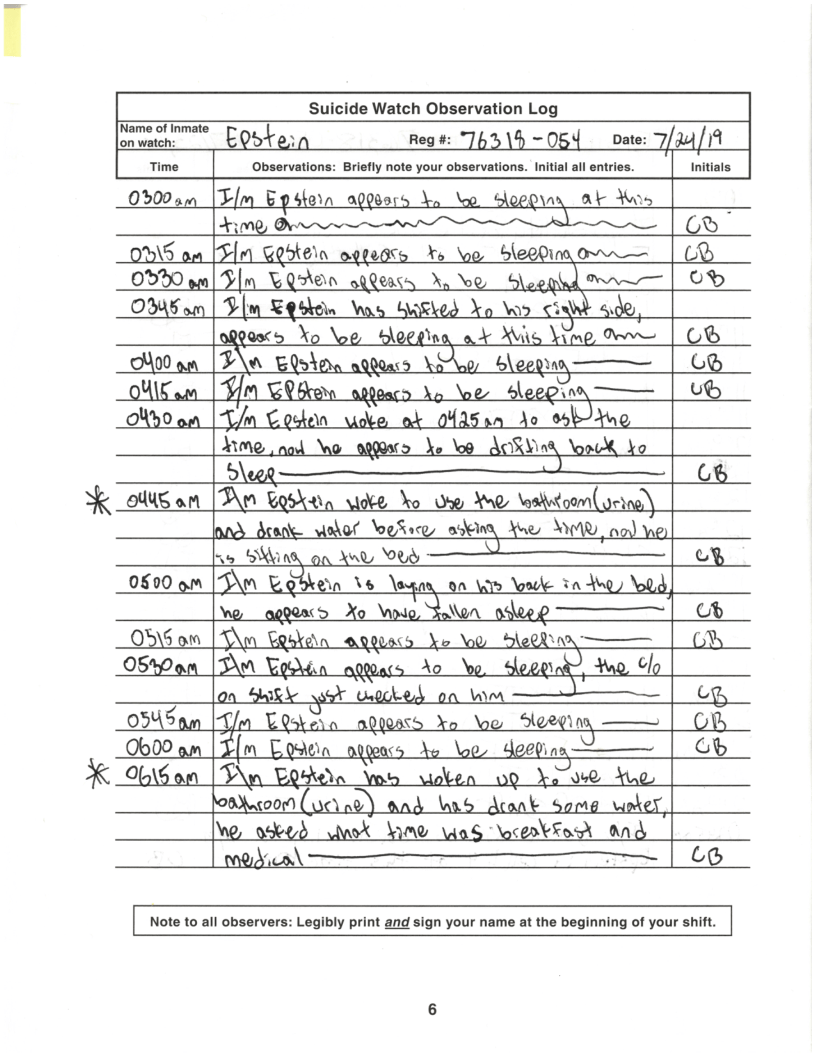 Suicide Watch Observation Log
Name of Inmate on watch: Epstein Reg #: 76318-054 Date: 7/24/19
Time Observations: Briefly note your observations. Initial all entries. Initials
0300 am I/m Epstein appears to be sleeping at this
time CB
0315 am I/m Epstein appears to be sleeping CB
0330 am I/m Epstein appears to be sleeping CB
0345 am I/m Epstein has shifted to his right side,
appears to be sleeping at this time CB
0400 am I\m Epstein appears to be sleeping CB
0415 am I/m Epstein appears to be sleeping CB
0430 am I/m Epstein woke at 0425 am to ask the
time, now he appears to be drifting back to
sleep CB
* 0445 am I\m Epstein woke to use the bathroom (urine)
and drank water before asking the time, now he
is sitting on the bed CB
0500 am I\m Epstein is laying on his back in the bed,
he appears to have fallen asleep CB
0515 am I\m Epstein appears to be sleeping CB
0530 am I\m Epstein appears to be sleeping, the c/o
on shift just checked on him CB
0545 am I/m Epstein appears to be sleeping CB
0600 am I/m Epstein appears to be sleeping CB
* 0615 am I\m Epstein has woken up to use the
bathroom (urine) and has drank some water,
he asked what time was breakfast and
medical CB
Note to all observers: Legibly print and sign your name at the beginning of your shift.
6